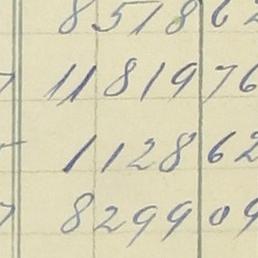 8518 62
11819 76
1128 62
8299 09